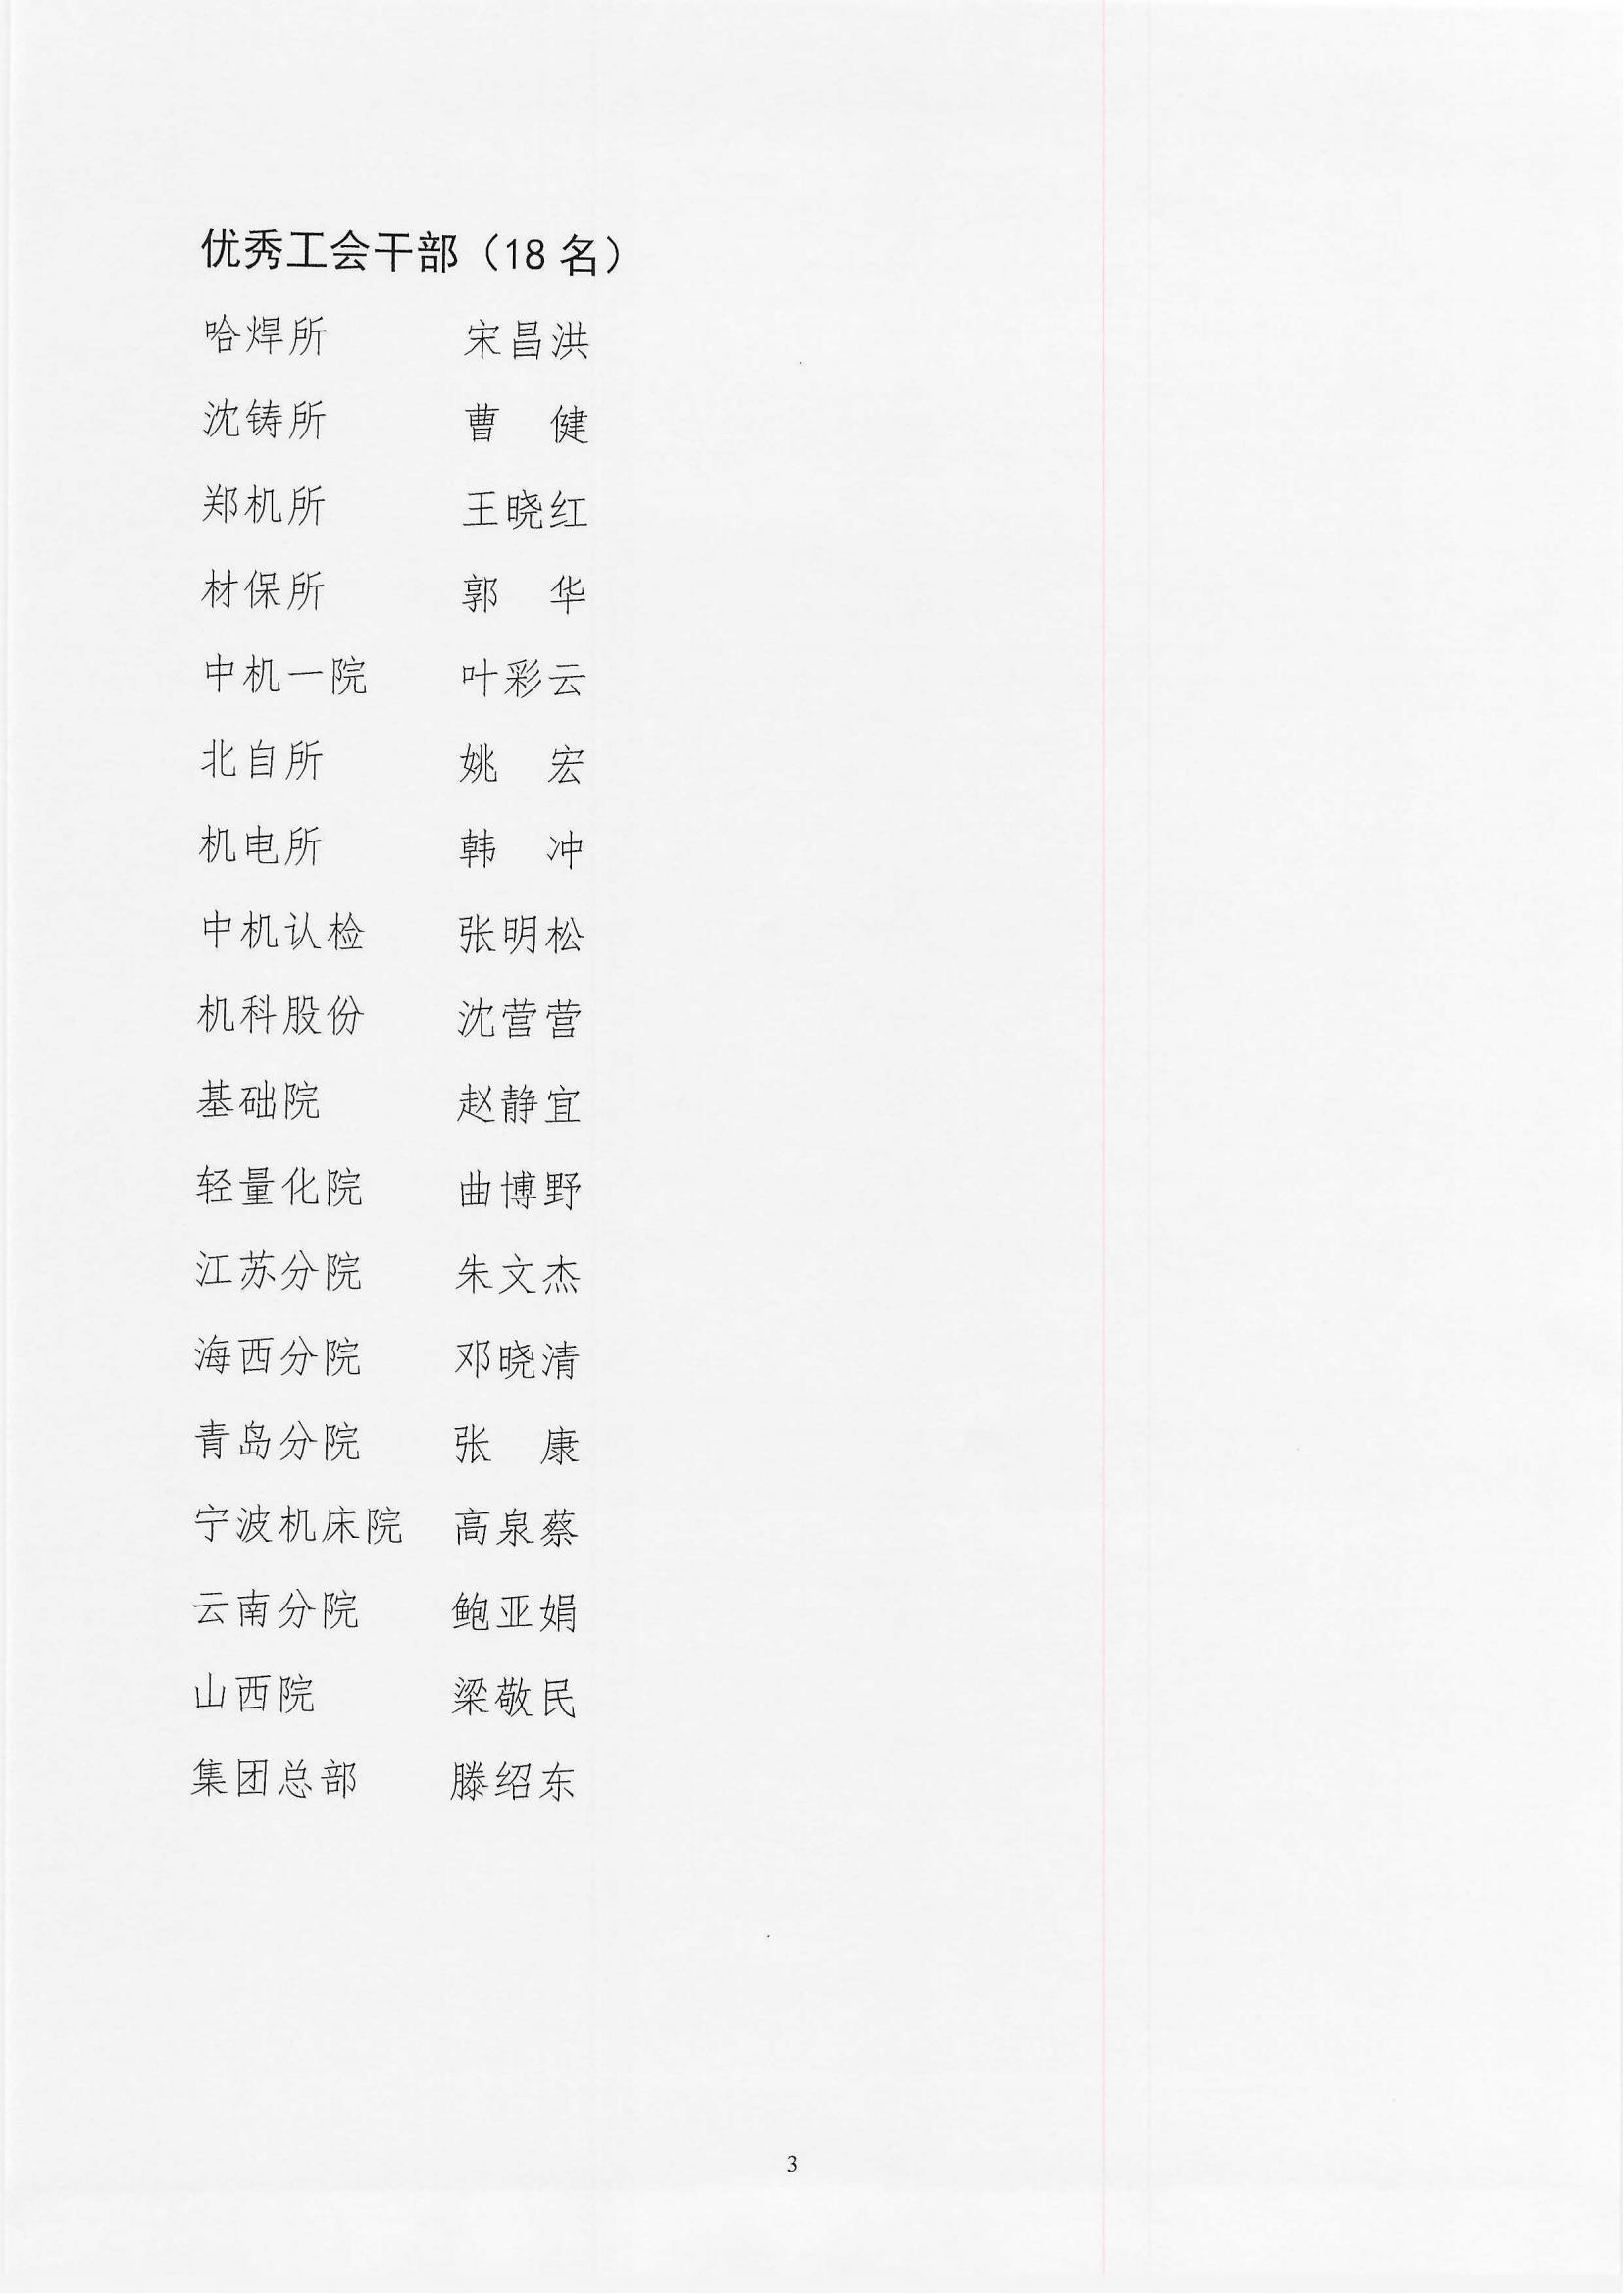 优秀工会干部（18 名）
哈焊所 宋昌洪
沈铸所 曹 健
郑机所 王晓红
材保所 郭 华
中机一院 叶彩云
北自所 姚 宏
机电所 韩 冲
中机认检 张明松
机科股份 沈营营
基础院 赵静宜
轻量化院 曲博野
江苏分院 朱文杰
海西分院 邓晓清
青岛分院 张 康
宁波机床院 高泉蔡
云南分院 鲍亚娟
山西院 梁敬民
集团总部 滕绍东
3